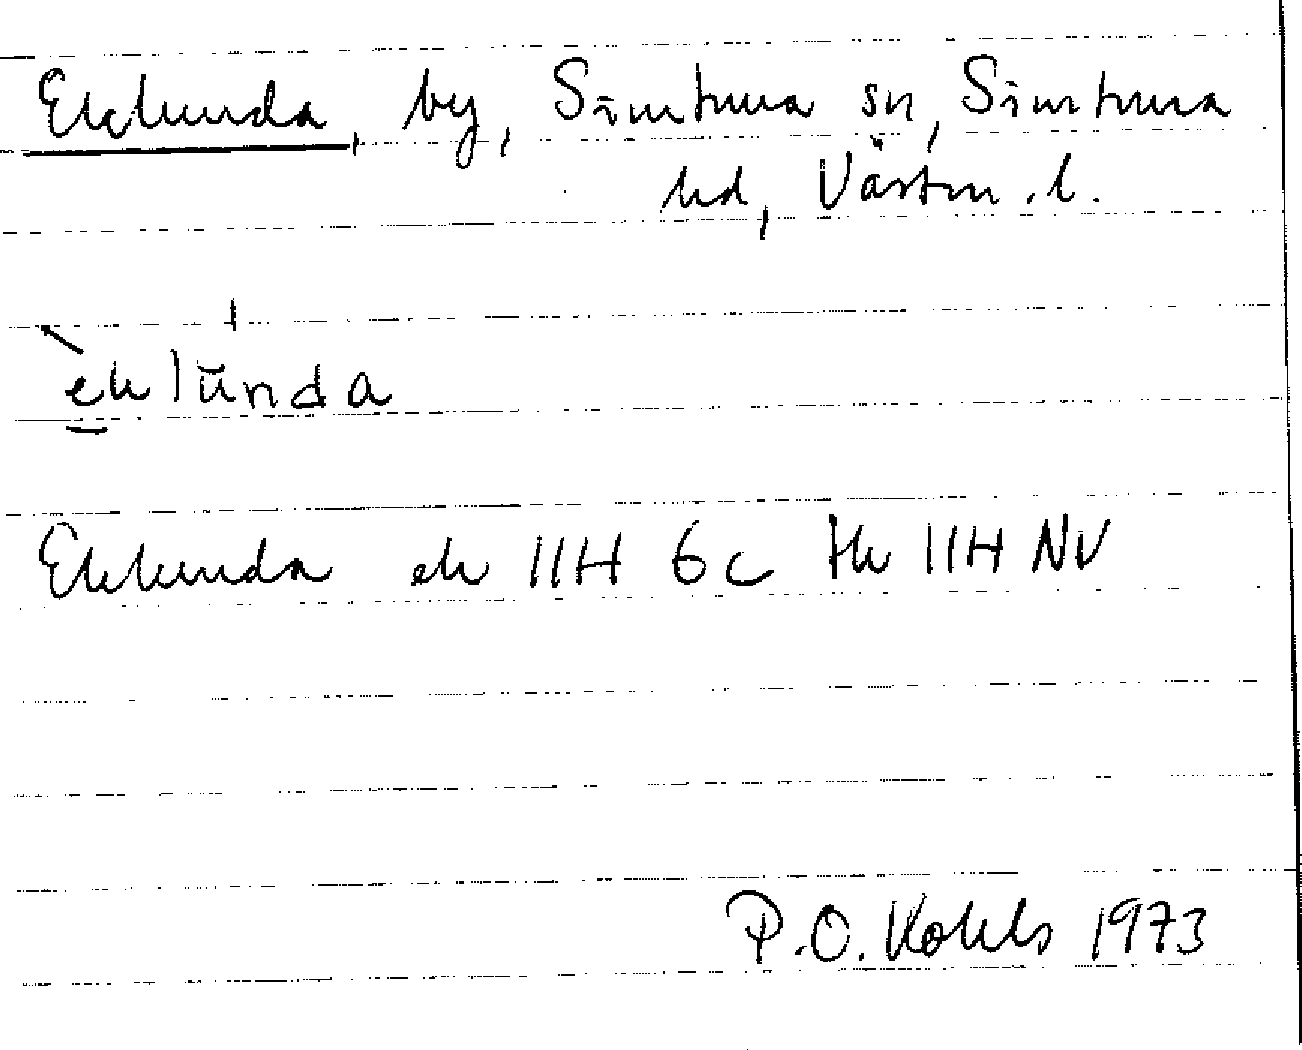 Eklunda, by, Simtuna sn, Simtuna
hd, Västm. l.
èklŭnda
Eklunda ek 11H 6c tk 11H NV
P.O. Kohls 1973